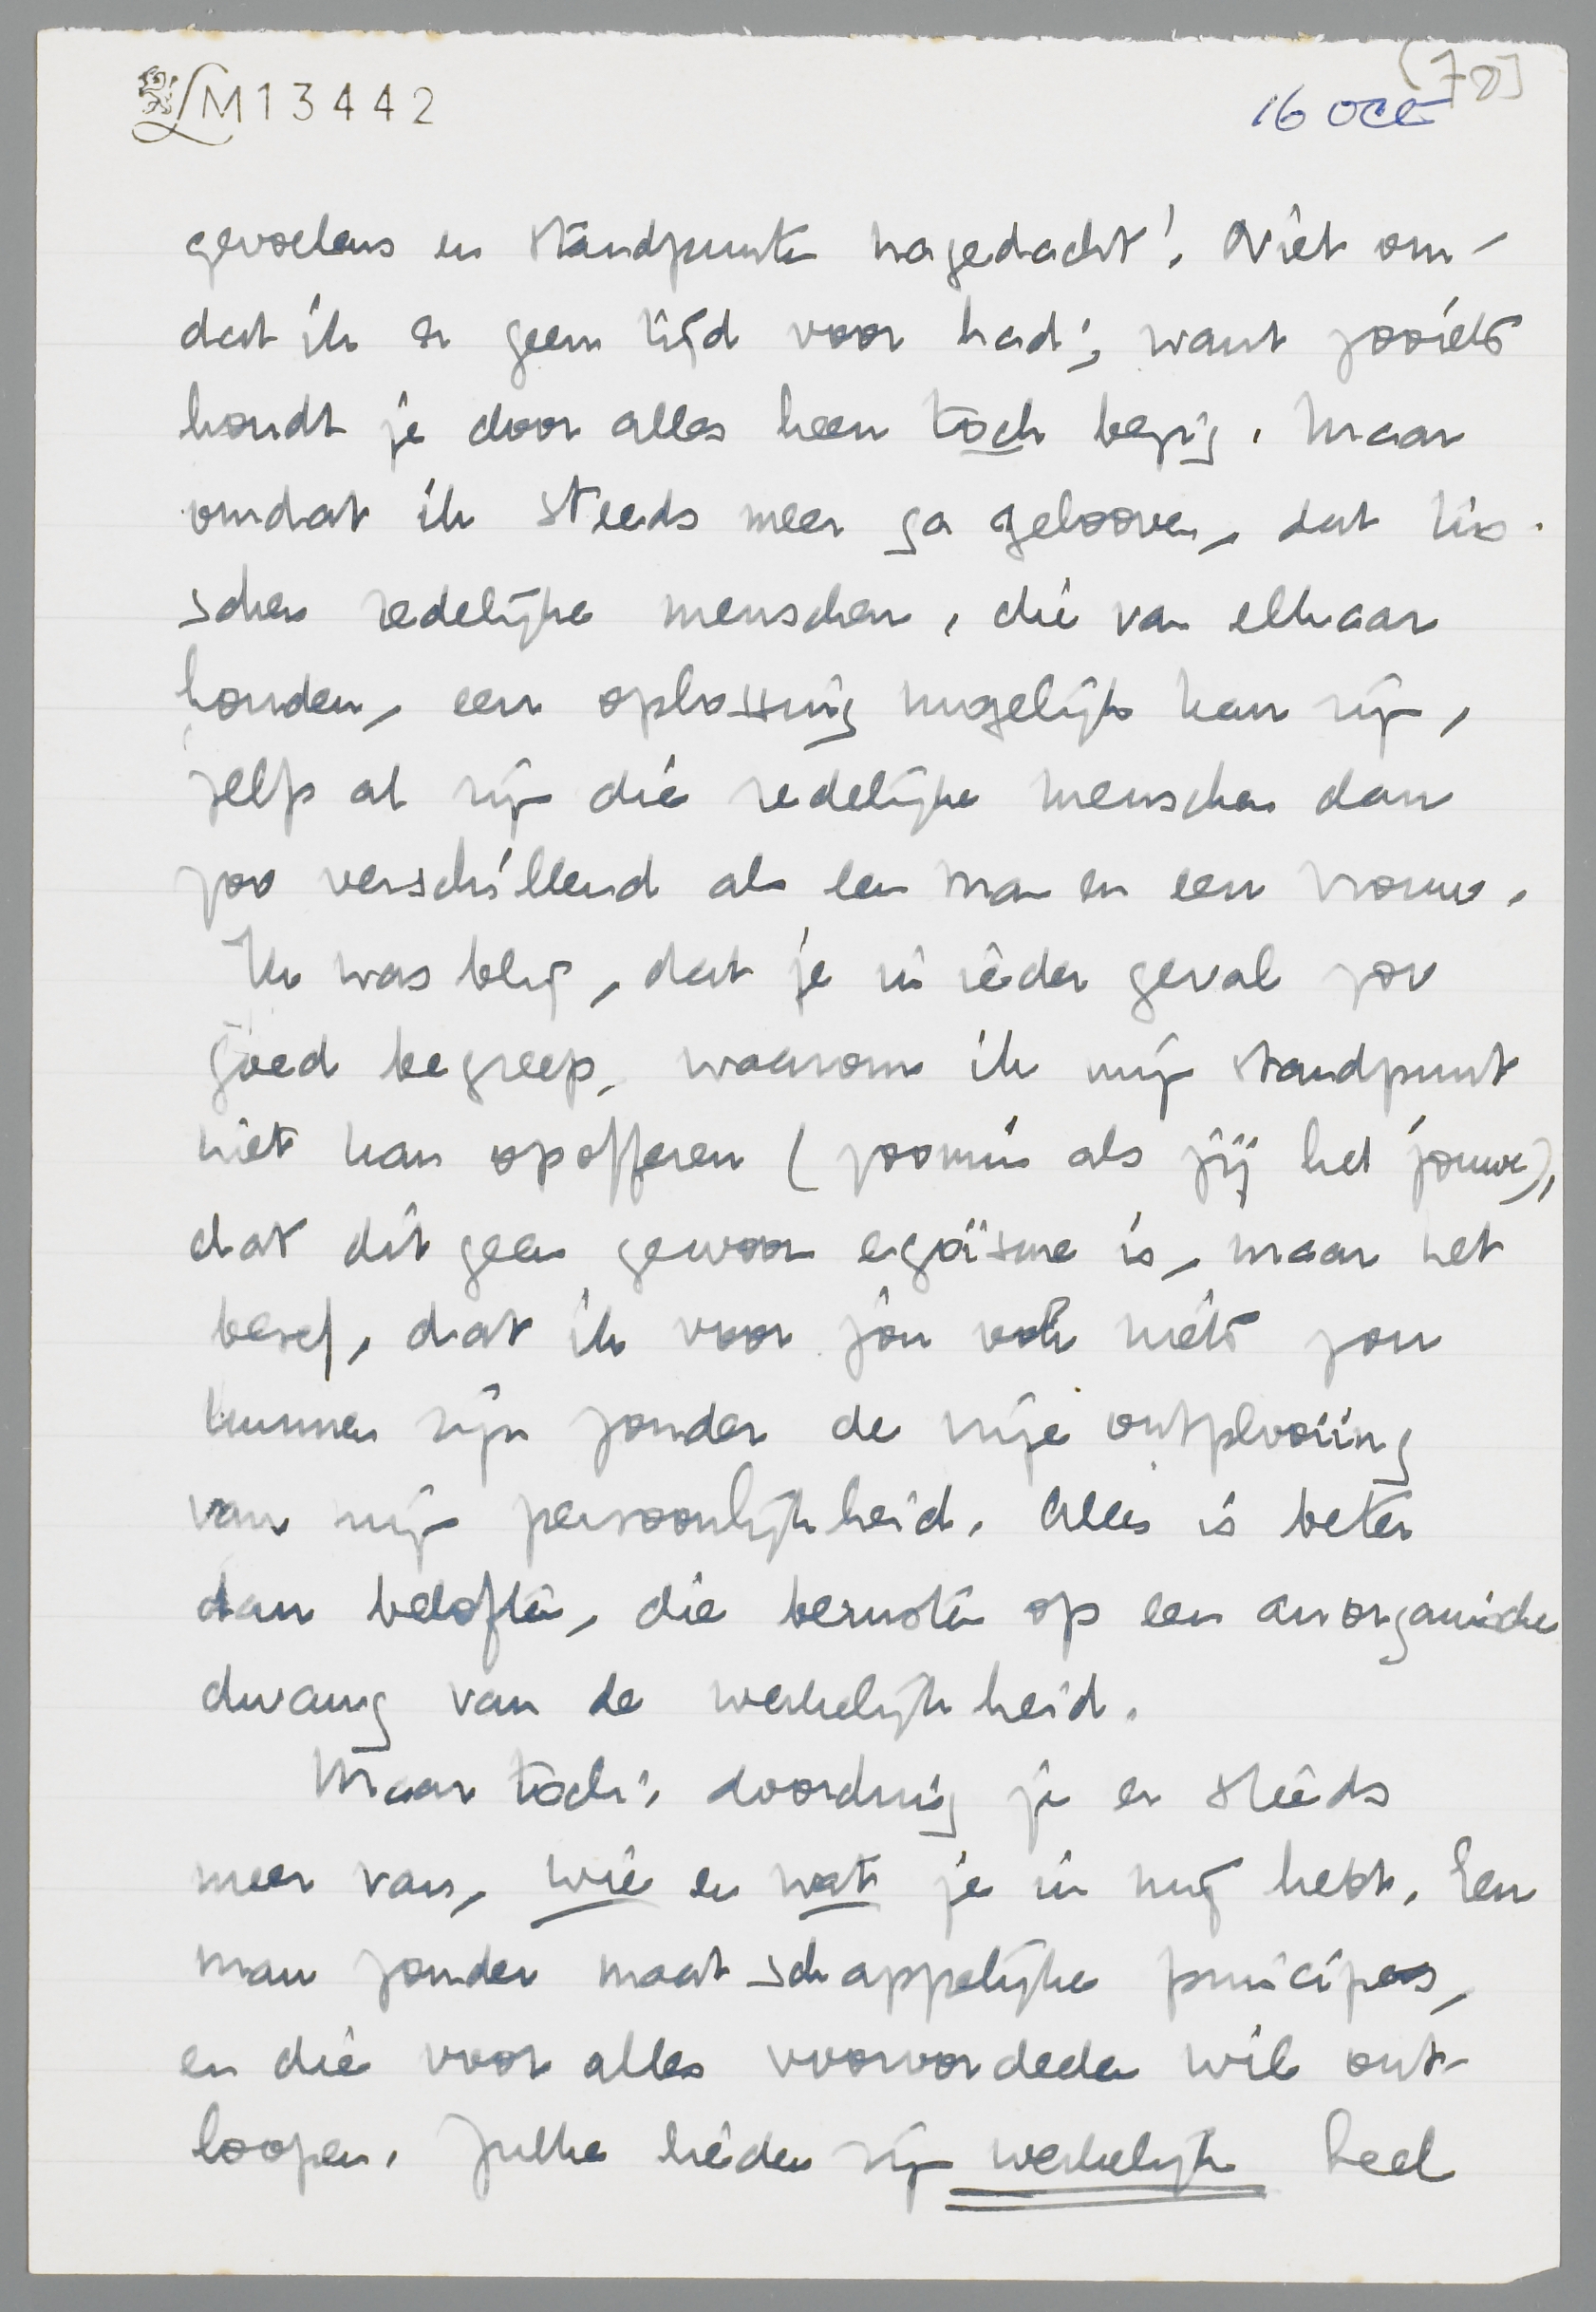 LM13442
[78]
16 Oct
gevoelens en standpunten nagedacht! Niet om-
dat ik er geen tijd voor had; want zooiets
houdt je door alles heen toch bezig. Maar
omdat ik steeds meer ga gelooven, dat tus-
schen redelijke menschen, die van elkaar
houden, een oplossing mogelijk kan zijn,
zelfs al zijn die redelijke menschen dan
zoo verschillend als een man en een vrouw.
Ik was blij, dat je in ieder geval zoo
goed begreep, waarom ik mijn standpunt
niet kan opofferen (zoomin als jij het jouwe),
dat dit geen gewoon egoïsme is, maar het
besef, dat ik voor jou ook niets zou
kunnen zijn zonder de vrije ontplooiing
van mijn persoonlijkheid. Alles is beter
dan beloften, die berusten op een anorganische
dwang van de werkelijkheid.
Maar toch: doordring je er steeds
meer van, wie en wat je in mij hebt. Een
man zonder maatschappelijke principes,
en die voor alles vooroordeelen wil ont-
loopen. Zulke lieden zijn werkelijk heel